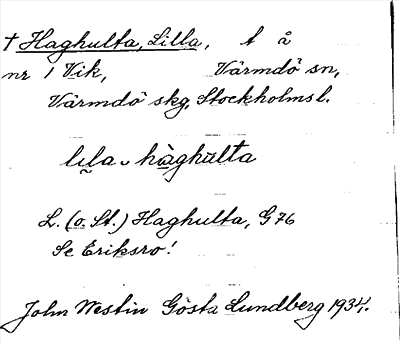 † Haghulta, Lilla, t å
nr 1 Vik, Värmdö sn,
Värmdö skg, Stockholms l.
lila hàghulta
L. (o. St.) Haghulta, G 76
Se Eriksro!
John Westin Gösta Lundberg 1934.